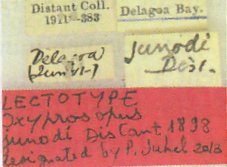 Distant Coll.
1911-383
Delagoa Bay.
Delagoa
junodi
Dist.
LECTOTYPE
Oxyprosopus
junodi Distant, 1898
designated by P. Juhel 2013